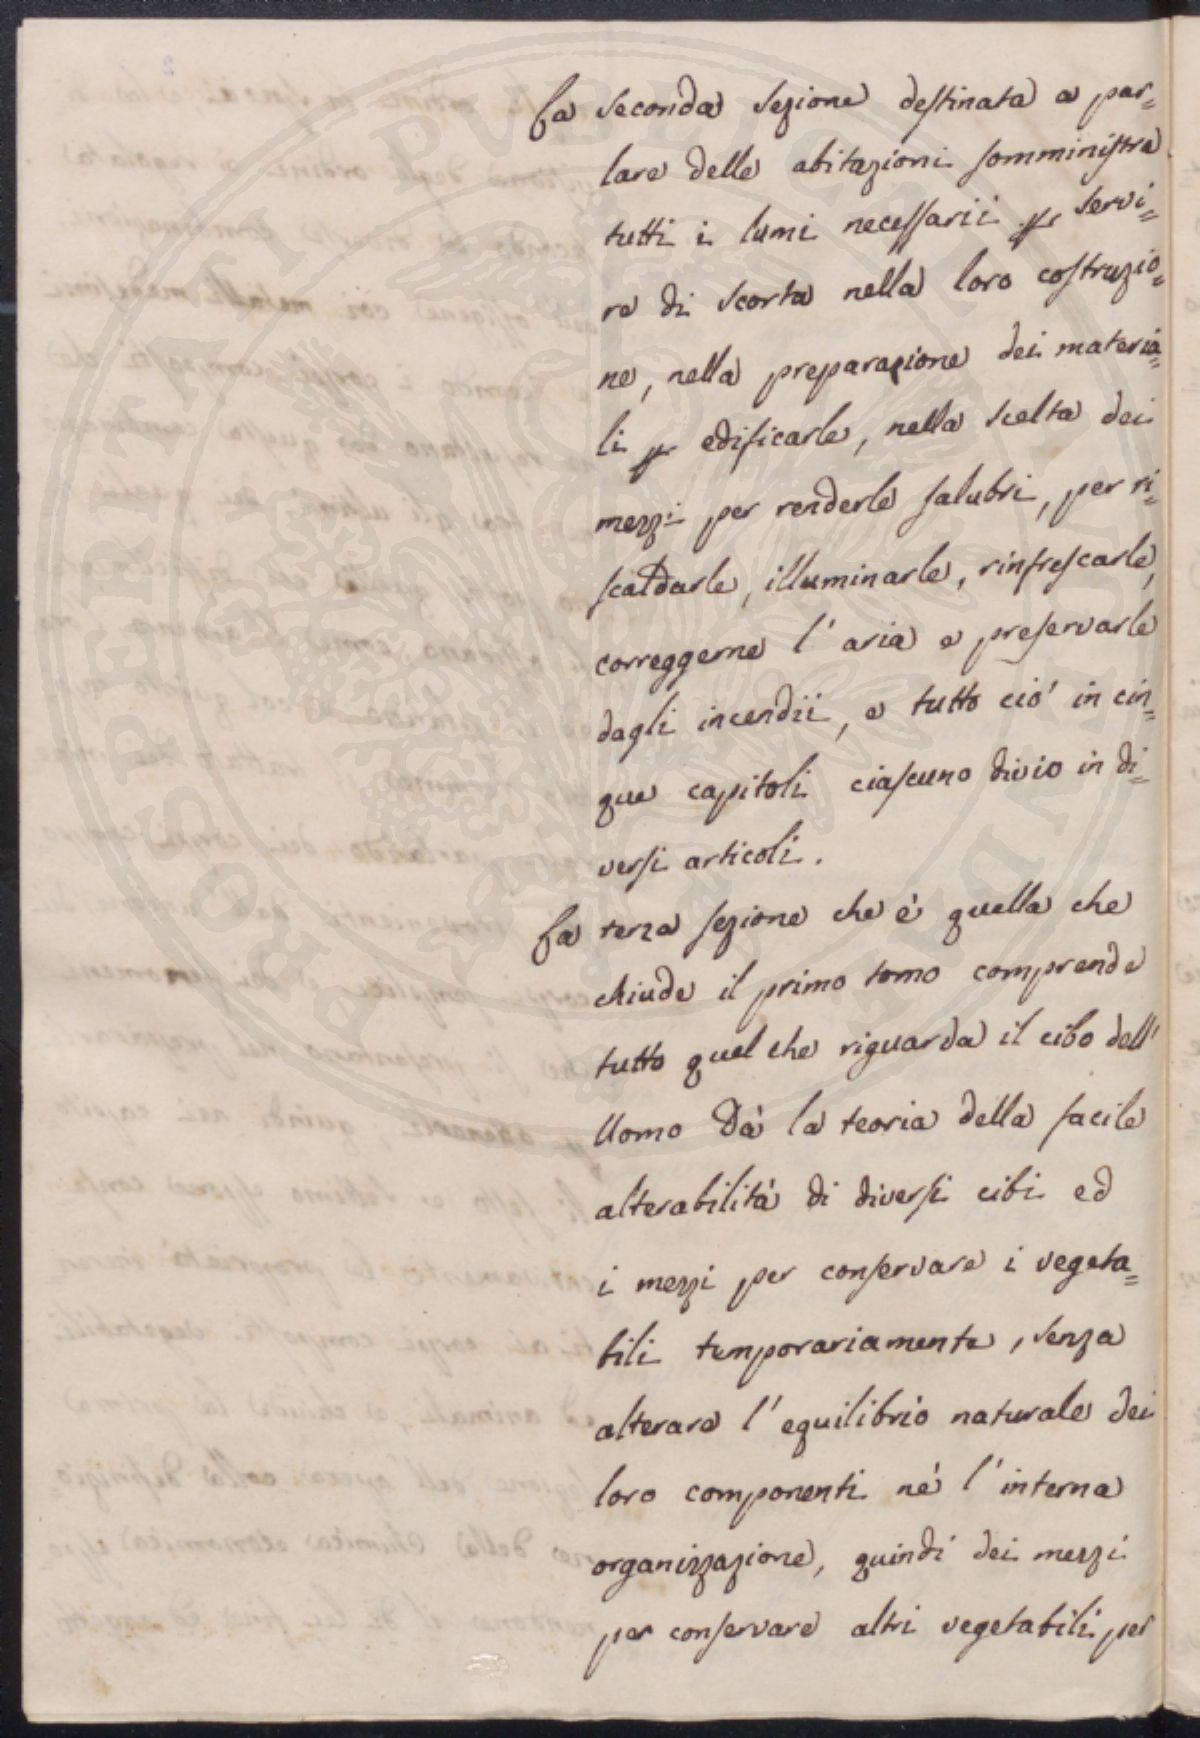 La seconda sezione destinata a par=
lare delle abitazioni somministra
tutti i lumi necessarii per servi=
re di scorta nella loro costruzio=
ne, nella preparazione dei materia=
li per edificarle, nella scelta dei
mezzi per renderle salubri, per ri=
scaldarle, illuminarle, rinfrescarle,
correggerne l' aria e preservarle
dagli incendii, e tutto ciò in cin=
que capitoli ciascuno divio in di=
versi articoli.
La terza sezione che è quella che
chiude il primo tomo comprende
tutto quel che riguarda il cibo dell'
Uomo Dà la teoria della facile
alterabilità di diversi cibi ed
i mezzi per conservare i vegeta=
bili temporariamente, senza
alterare l' equilibrio naturale dei
loro componenti nè l' interna
organizzazione, quindi dei mezzi
per conservare altri vegetabili per
PROSPERITATI PUBLICAE AUGENDAE